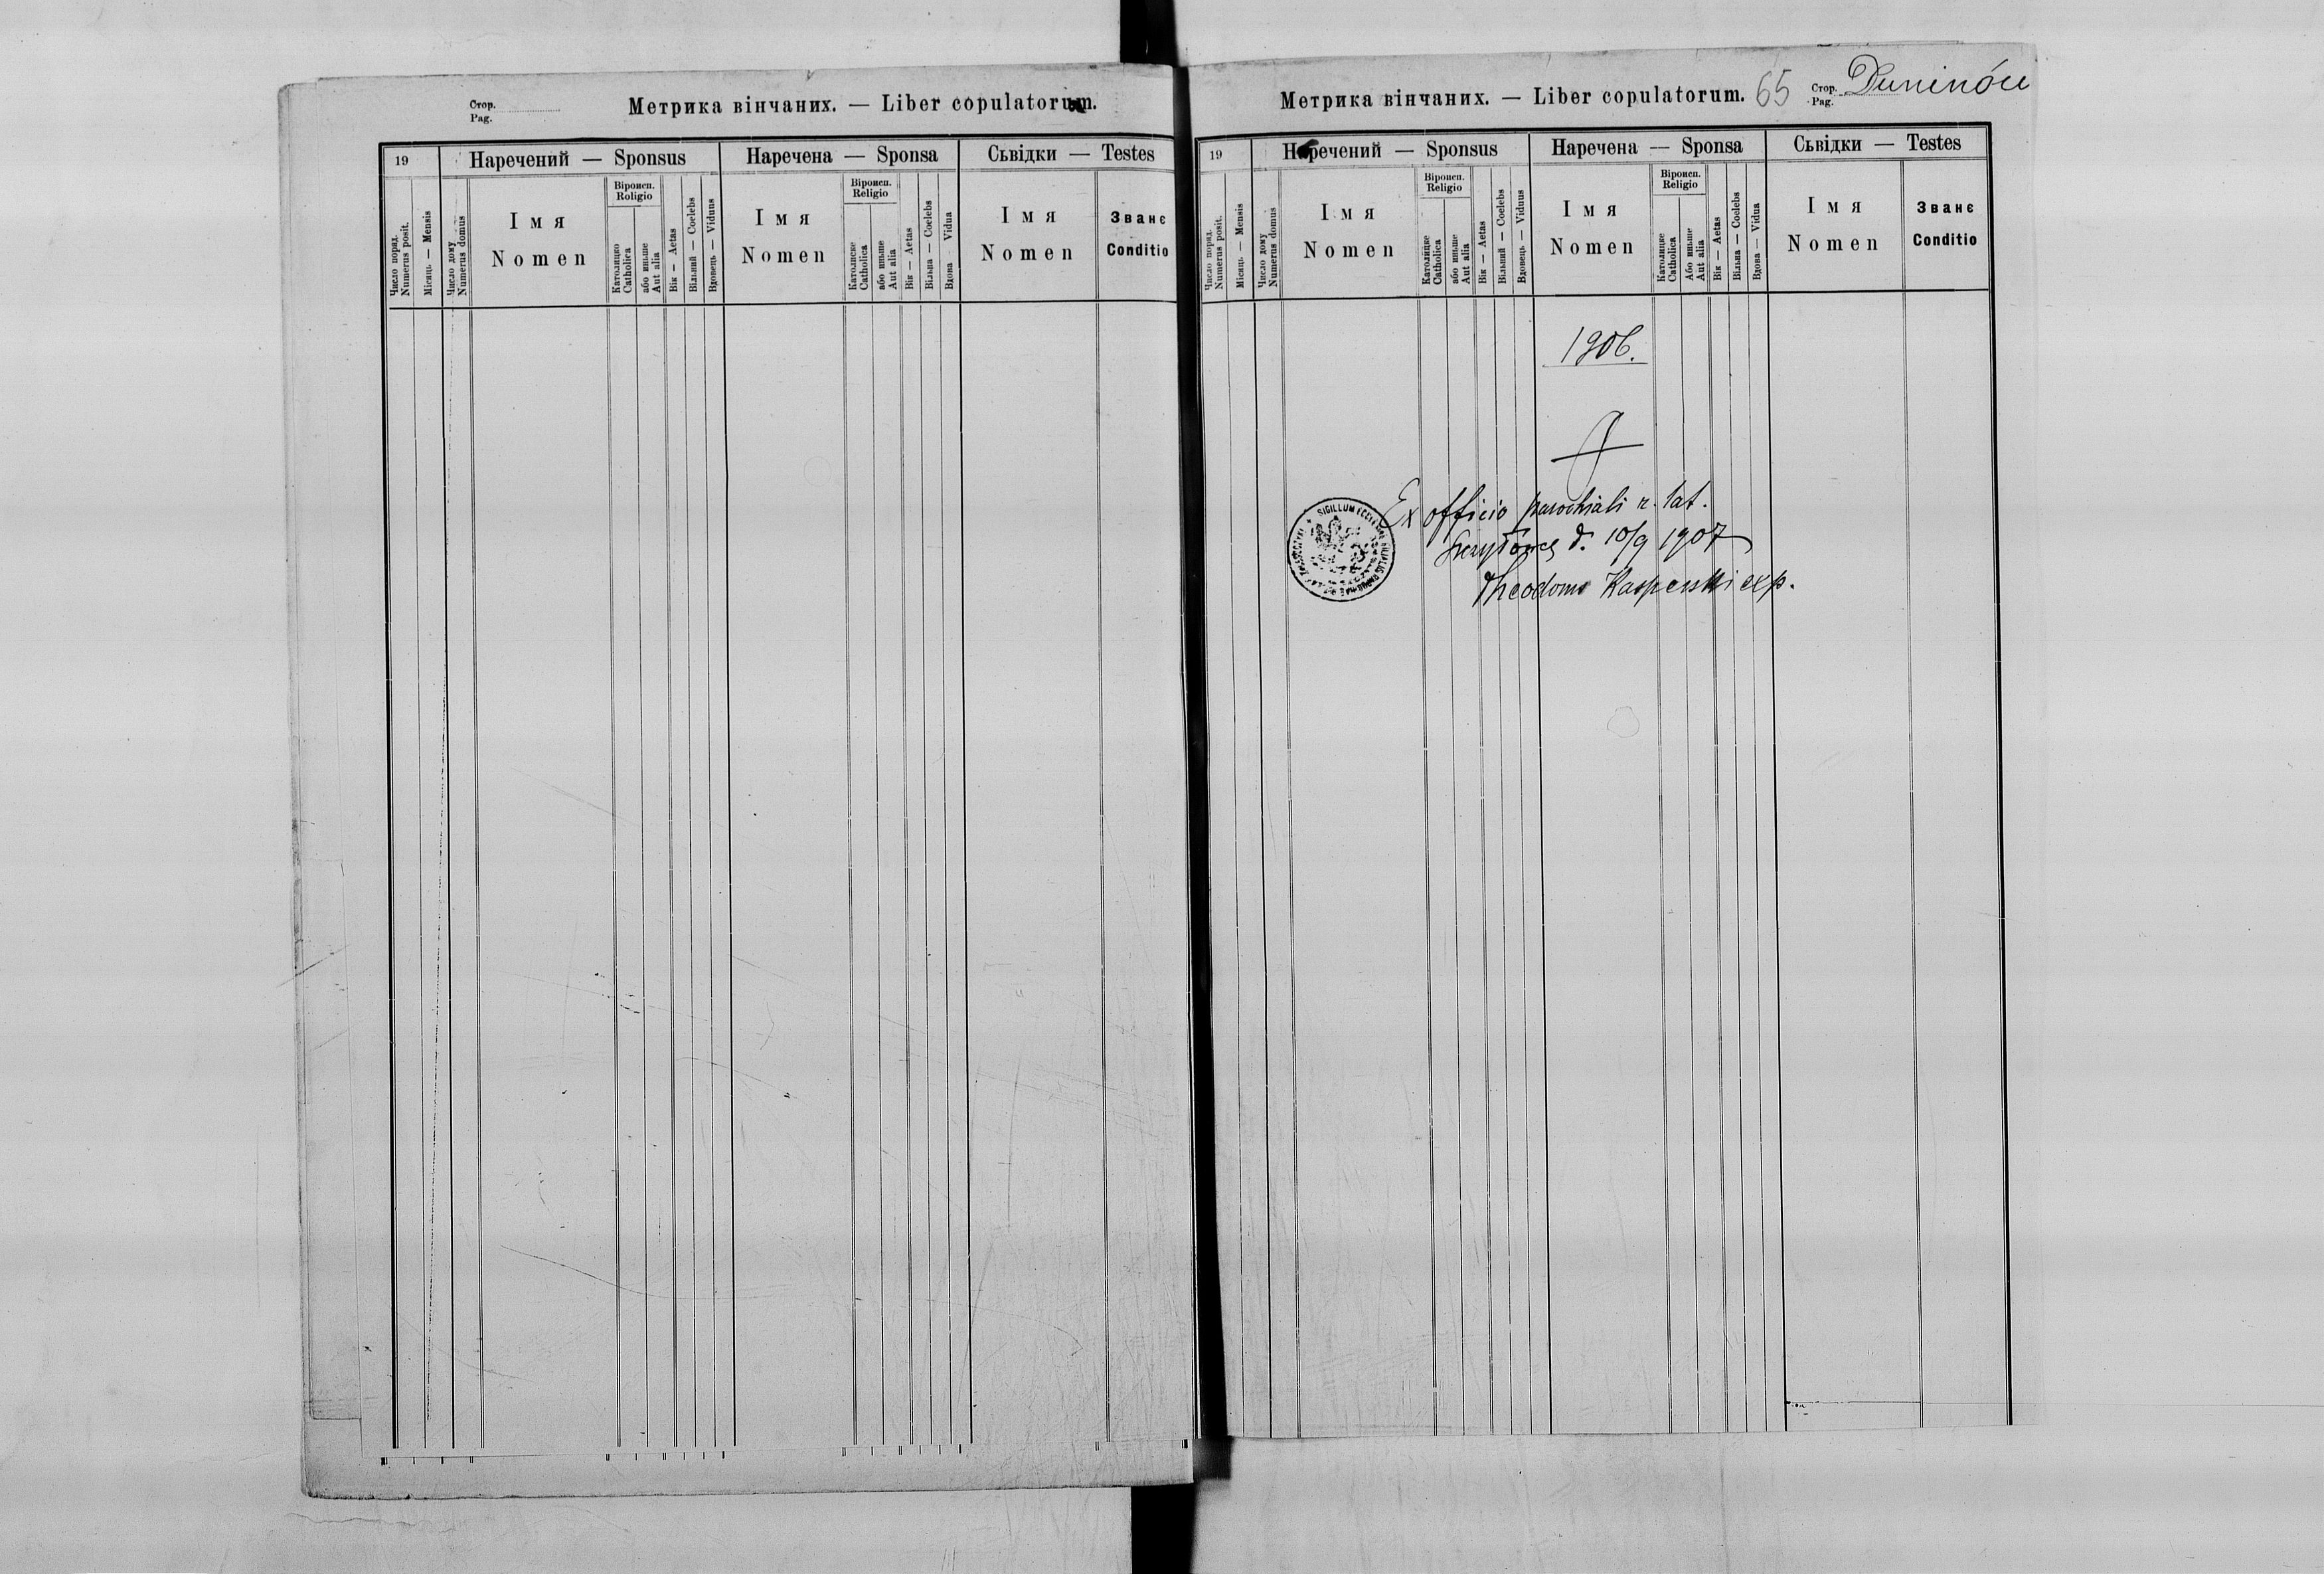 Стор.
Pag.
Метрика вінчаних. — Liber copulatorum.
19
Наречений — Sponsus
Наречена — Sponsa
Сьвідки — Testes
Число поряд.
Numerus posit.
Місяць — Mensis
Число дому
Numerus domus
Імя
Nomen
Віроисп.
Religio
Католицке
Catholica
або иньше
Aut alia
Вік — Aetas
Вільний — Coelebs
Вдовець — Viduus
Імя
Nomen
Віроисп.
Religio
Католицке
Catholica
або иньше
Aut alia
Вік — Aetas
Вільна — Coelebs
Вдова — Vidua
Імя
Nomen
Званє
Conditio
Метрика вінчаних. — Liber copulatorum.
65
Стор.
Pag.
Duninów
19
Наречений — Sponsus
Наречена — Sponsa
Сьвідки — Testes
Число поряд.
Numerus posit.
Місяць — Mensis
Число дому
Numerus domus
Імя
Nomen
Віроисп.
Religio
Католицке
Catholica
або иньше
Aut alia
Вік — Aetas
Вільний — Coelebs
Вдовець — Viduus
Імя
Nomen
Віроисп.
Religio
Католицке
Catholica
Або иньше
Aut alia
Вік — Aetas
Вільна — Coelebs
Вдова — Vidua
Імя
Nomen
Званє
Conditio
1906.
Ex officio parochiali r. lat.
d. 10/9 1907
Kasperski exp.
SIGILLUM